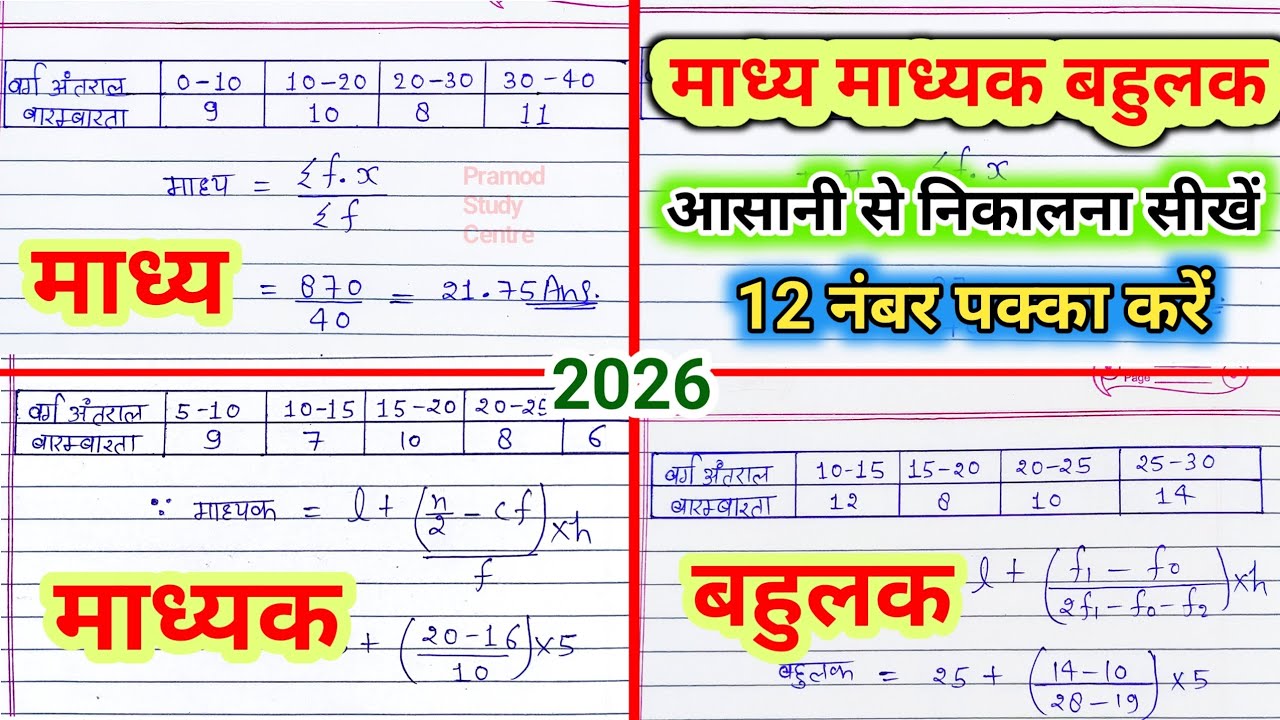 वर्ग अंतराल 0-10 10-20 20-30 30-40
बारम्बारता 9 10 8 11
माध्य = Σf.x / Σf
Pramod
Study
Centre
माध्य
= 870/40 = 21.75 Ans.
माध्य माध्यक बहुलक
f.x
आसानी से निकालना सीखें
12 नंबर पक्का करें
2026
वर्ग अंतराल 5-10 10-15 15-20 20-25
बारम्बारता 9 7 10 8 6
∵ माध्यक = l + (n/2 - cf)/f × h
माध्यक
+ (20-16/10) × 5
Page
वर्ग अंतराल 10-15 15-20 20-25 25-30
बारम्बारता 12 8 10 14
बहुलक
l + (f₁ - f₀ / 2f₁ - f₀ - f₂) × h
बहुलक = 25 + (14-10 / 28-19) × 5